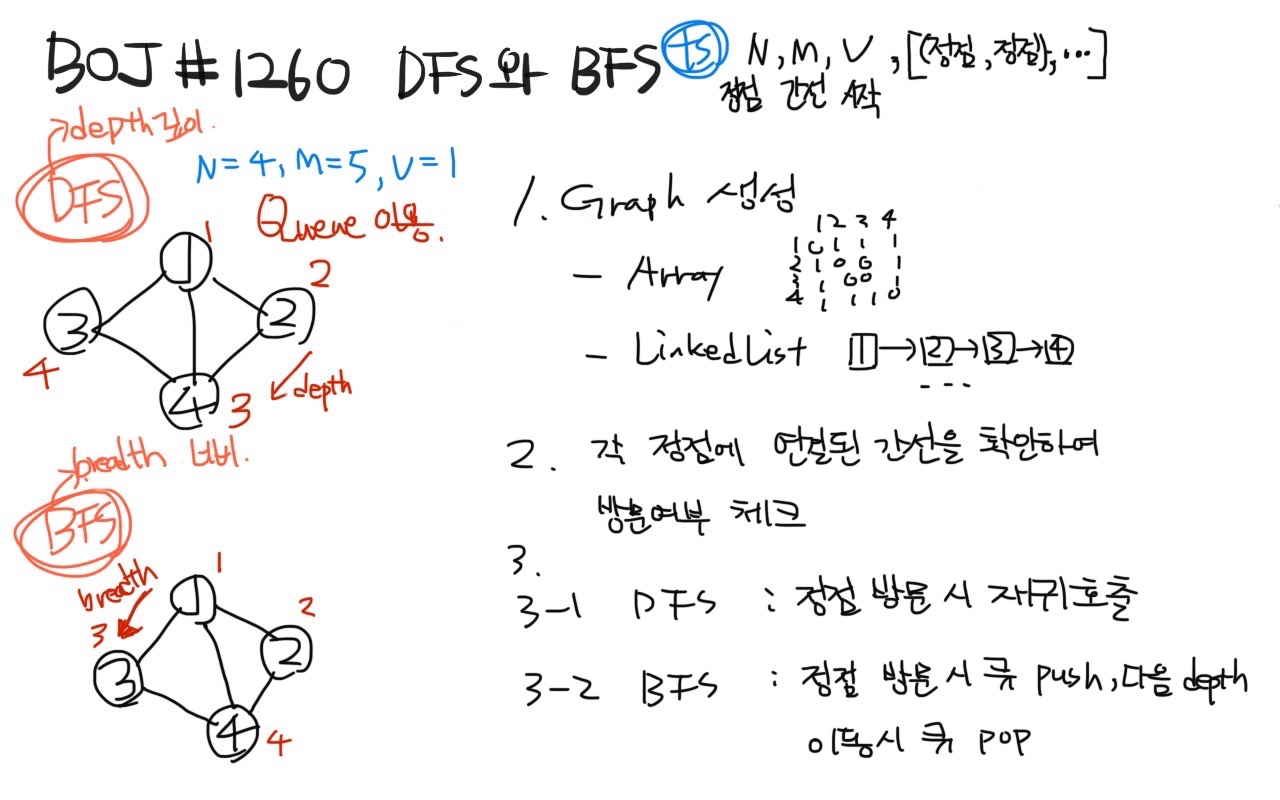 BOJ #1260 DFS와 BFS
ts N, M, V, [(정점, 정점), ...]
정점 간선 시작
depth 깊이.
DFS
N=4, M=5, V=1
Queue 이용.
1
1
2
2
3
4
4
3
depth
breadth 너비.
BFS
breadth
1
1
2
2
3
3
4
4
1. Graph 생성
- Array
1 2 3 4
1 0 1 1 1
2 1 0 0 1
3 1 0 0 1
4 1 1 1 0
- LinkedList 1→2→3→4
...
2. 각 정점에 연결된 간선을 확인하여
방문여부 체크
3.
3-1 DFS : 정점 방문 시 재귀호출
3-2 BFS : 정점 방문 시 큐 push, 다음 depth
이동시 큐 pop